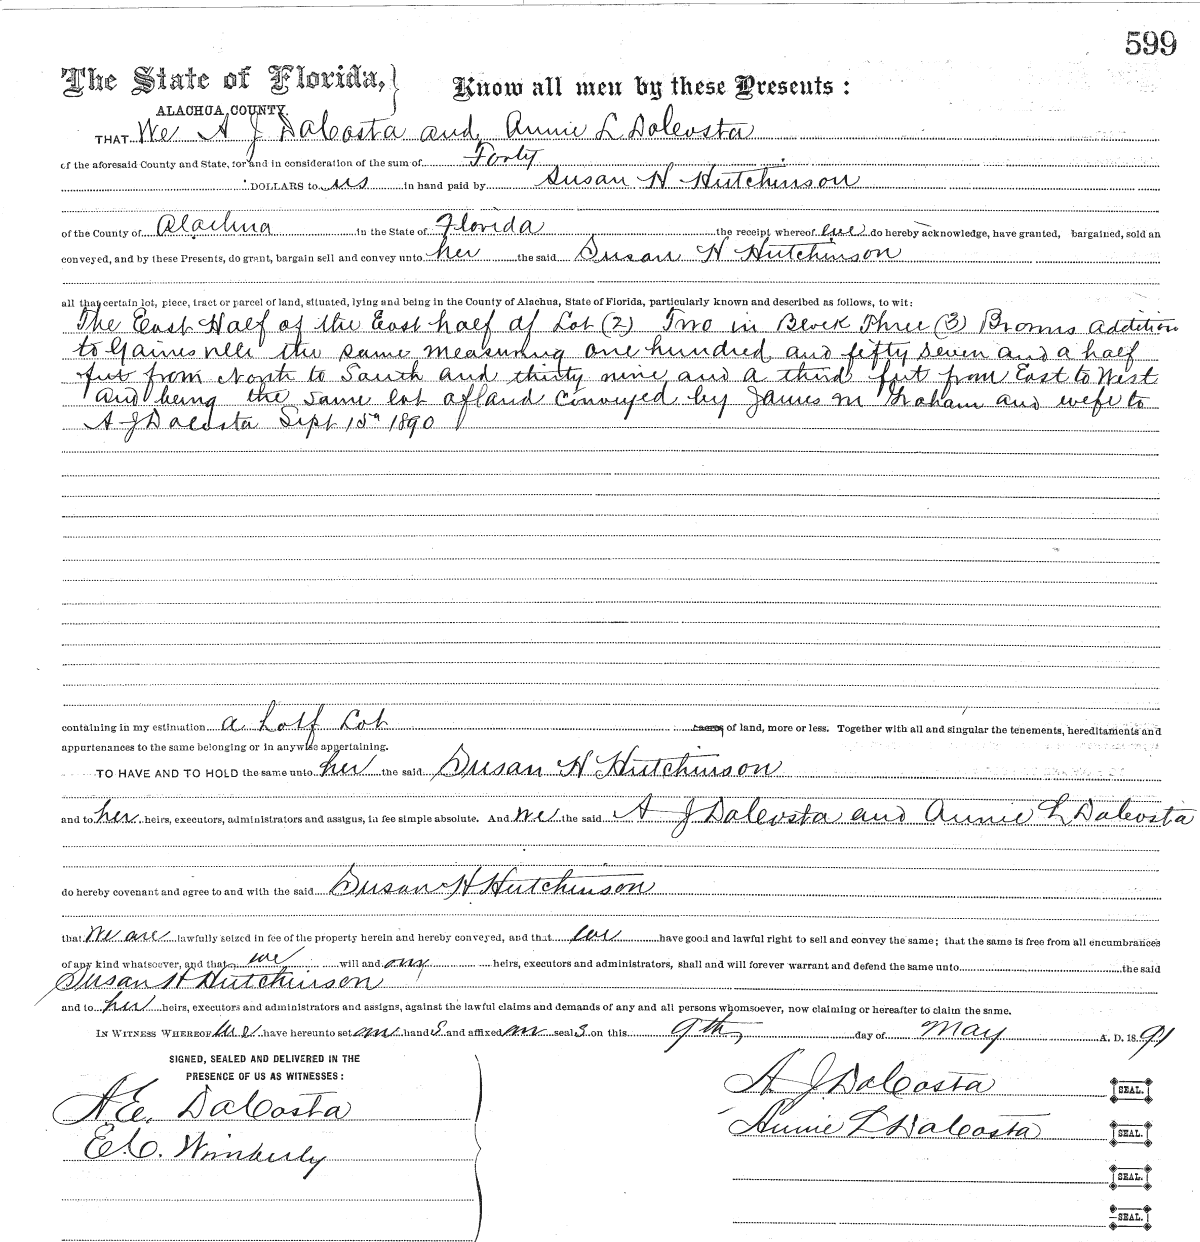 599
The State of Florida,
Know all men by these Presents :
ALACHUA COUNTY
THAT We A J DaCosta and Annie L DaCosta
of the aforesaid County and State, for and in consideration of the sum of Forty
DOLLARS to us in hand paid by Susan H Hutchinson
of the County of Alachua in the State of Florida the receipt whereof we do hereby acknowledge, have granted, bargained, sold an
conveyed, and by these Presents, do grant, bargain sell and convey unto her the said Susan H Hutchinson
all that certain lot, piece, tract or parcel of land, situated, lying and being in the County of Alachua, State of Florida, particularly known and described as follows, to wit:
The East Half of the East half of Lot (2) Two in Block Three (3) Browns addition
to Gainesville the same measuring one hundred and fifty seven and a half
feet from North to South and thirty nine and a third feet from East to West
and being the same lot of land conveyed by James M Graham and wife to
A J DaCosta Sept 15th 1890
containing in my estimation a half Lot of land, more or less. Together with all and singular the tenements, hereditaments and
appurtenances to the same belonging or in anywise appertaining.
TO HAVE AND TO HOLD the same unto her the said Susan H Hutchinson
and to her heirs, executors, administrators and assigns, in fee simple absolute. And We the said A J DaCosta and Annie L DaCosta
do hereby covenant and agree to and with the said Susan H Hutchinson
that We are lawfully seized in fee of the property herein and hereby conveyed, and that we have good and lawful right to sell and convey the same; that the same is free from all encumbrances
of any kind whatsoever, and that we will and our heirs, executors and administrators, shall and will forever warrant and defend the same unto the said
Susan H Hutchinson
and to her heirs, executors and administrators and assigns, against the lawful claims and demands of any and all persons whomsoever, now claiming or hereafter to claim the same.
IN WITNESS WHEREOF We have hereunto set our hand s and affixed our seal s on this 9th day of May A. D. 1891
SIGNED, SEALED AND DELIVERED IN THE
PRESENCE OF US AS WITNESSES :
A J DaCosta SEAL.
A.E. DaCosta
Annie L DaCosta SEAL.
E.C. Wimberly
SEAL.
SEAL.